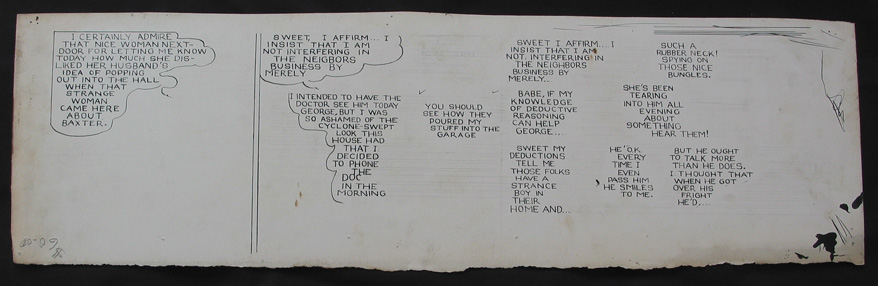 I CERTAINLY ADMIRE
THAT NICE WOMAN NEXT-
DOOR FOR LETTING ME KNOW
TODAY HOW MUCH SHE DIS-
LIKED HER HUSBAND'S
IDEA OF POPPING
OUT INTO THE HALL
WHEN THAT
STRANGE
WOMAN
CAME HERE
ABOUT
BAXTER.
SWEET, I AFFIRM... I
INSIST THAT I AM
NOT INTERFERING IN
THE NEIGBORS
BUSINESS BY
MERELY
I INTENDED TO HAVE THE
DOCTOR SEE HIM TODAY
GEORGE, BUT I WAS
SO ASHAMED OF THE
CYCLONE-SWEPT
LOOK THIS
HOUSE HAD
THAT I
DECIDED
TO PHONE
THE
DOC
IN THE
MORNING
YOU SHOULD
SEE HOW THEY
POURED MY
STUFF INTO THE
GARAGE
SWEET I AFFIRM... I
INSIST THAT I AM
NOT INTERFERING IN
THE NEIGHBORS
BUSINESS BY
MERELY...
BABE, IF MY
KNOWLEDGE
OF DEDUCTIVE
REASONING
CAN HELP
GEORGE...
SWEET MY
DEDUCTIONS
TELL ME
THOSE FOLKS
HAVE A
STRANCE
BOY IN
THEIR
HOME AND...
SUCH A
RUBBER NECK!
SPYING ON
THOSE NICE
BUNGLES.
SHE'S BEEN
TEARING
INTO HIM ALL
EVENING
ABOUT
SOMETHING
HEAR THEM!
HE'O.K
EVERY
TIME I
EVEN
PASS HIM
HE SMILES
TO ME.
BUT HE OUGHT
TO TALK MORE
THAN HE DOES.
I THOUGHT THAT
WHEN HE GOT
OVER HIS
FRIGHT
HE'D....